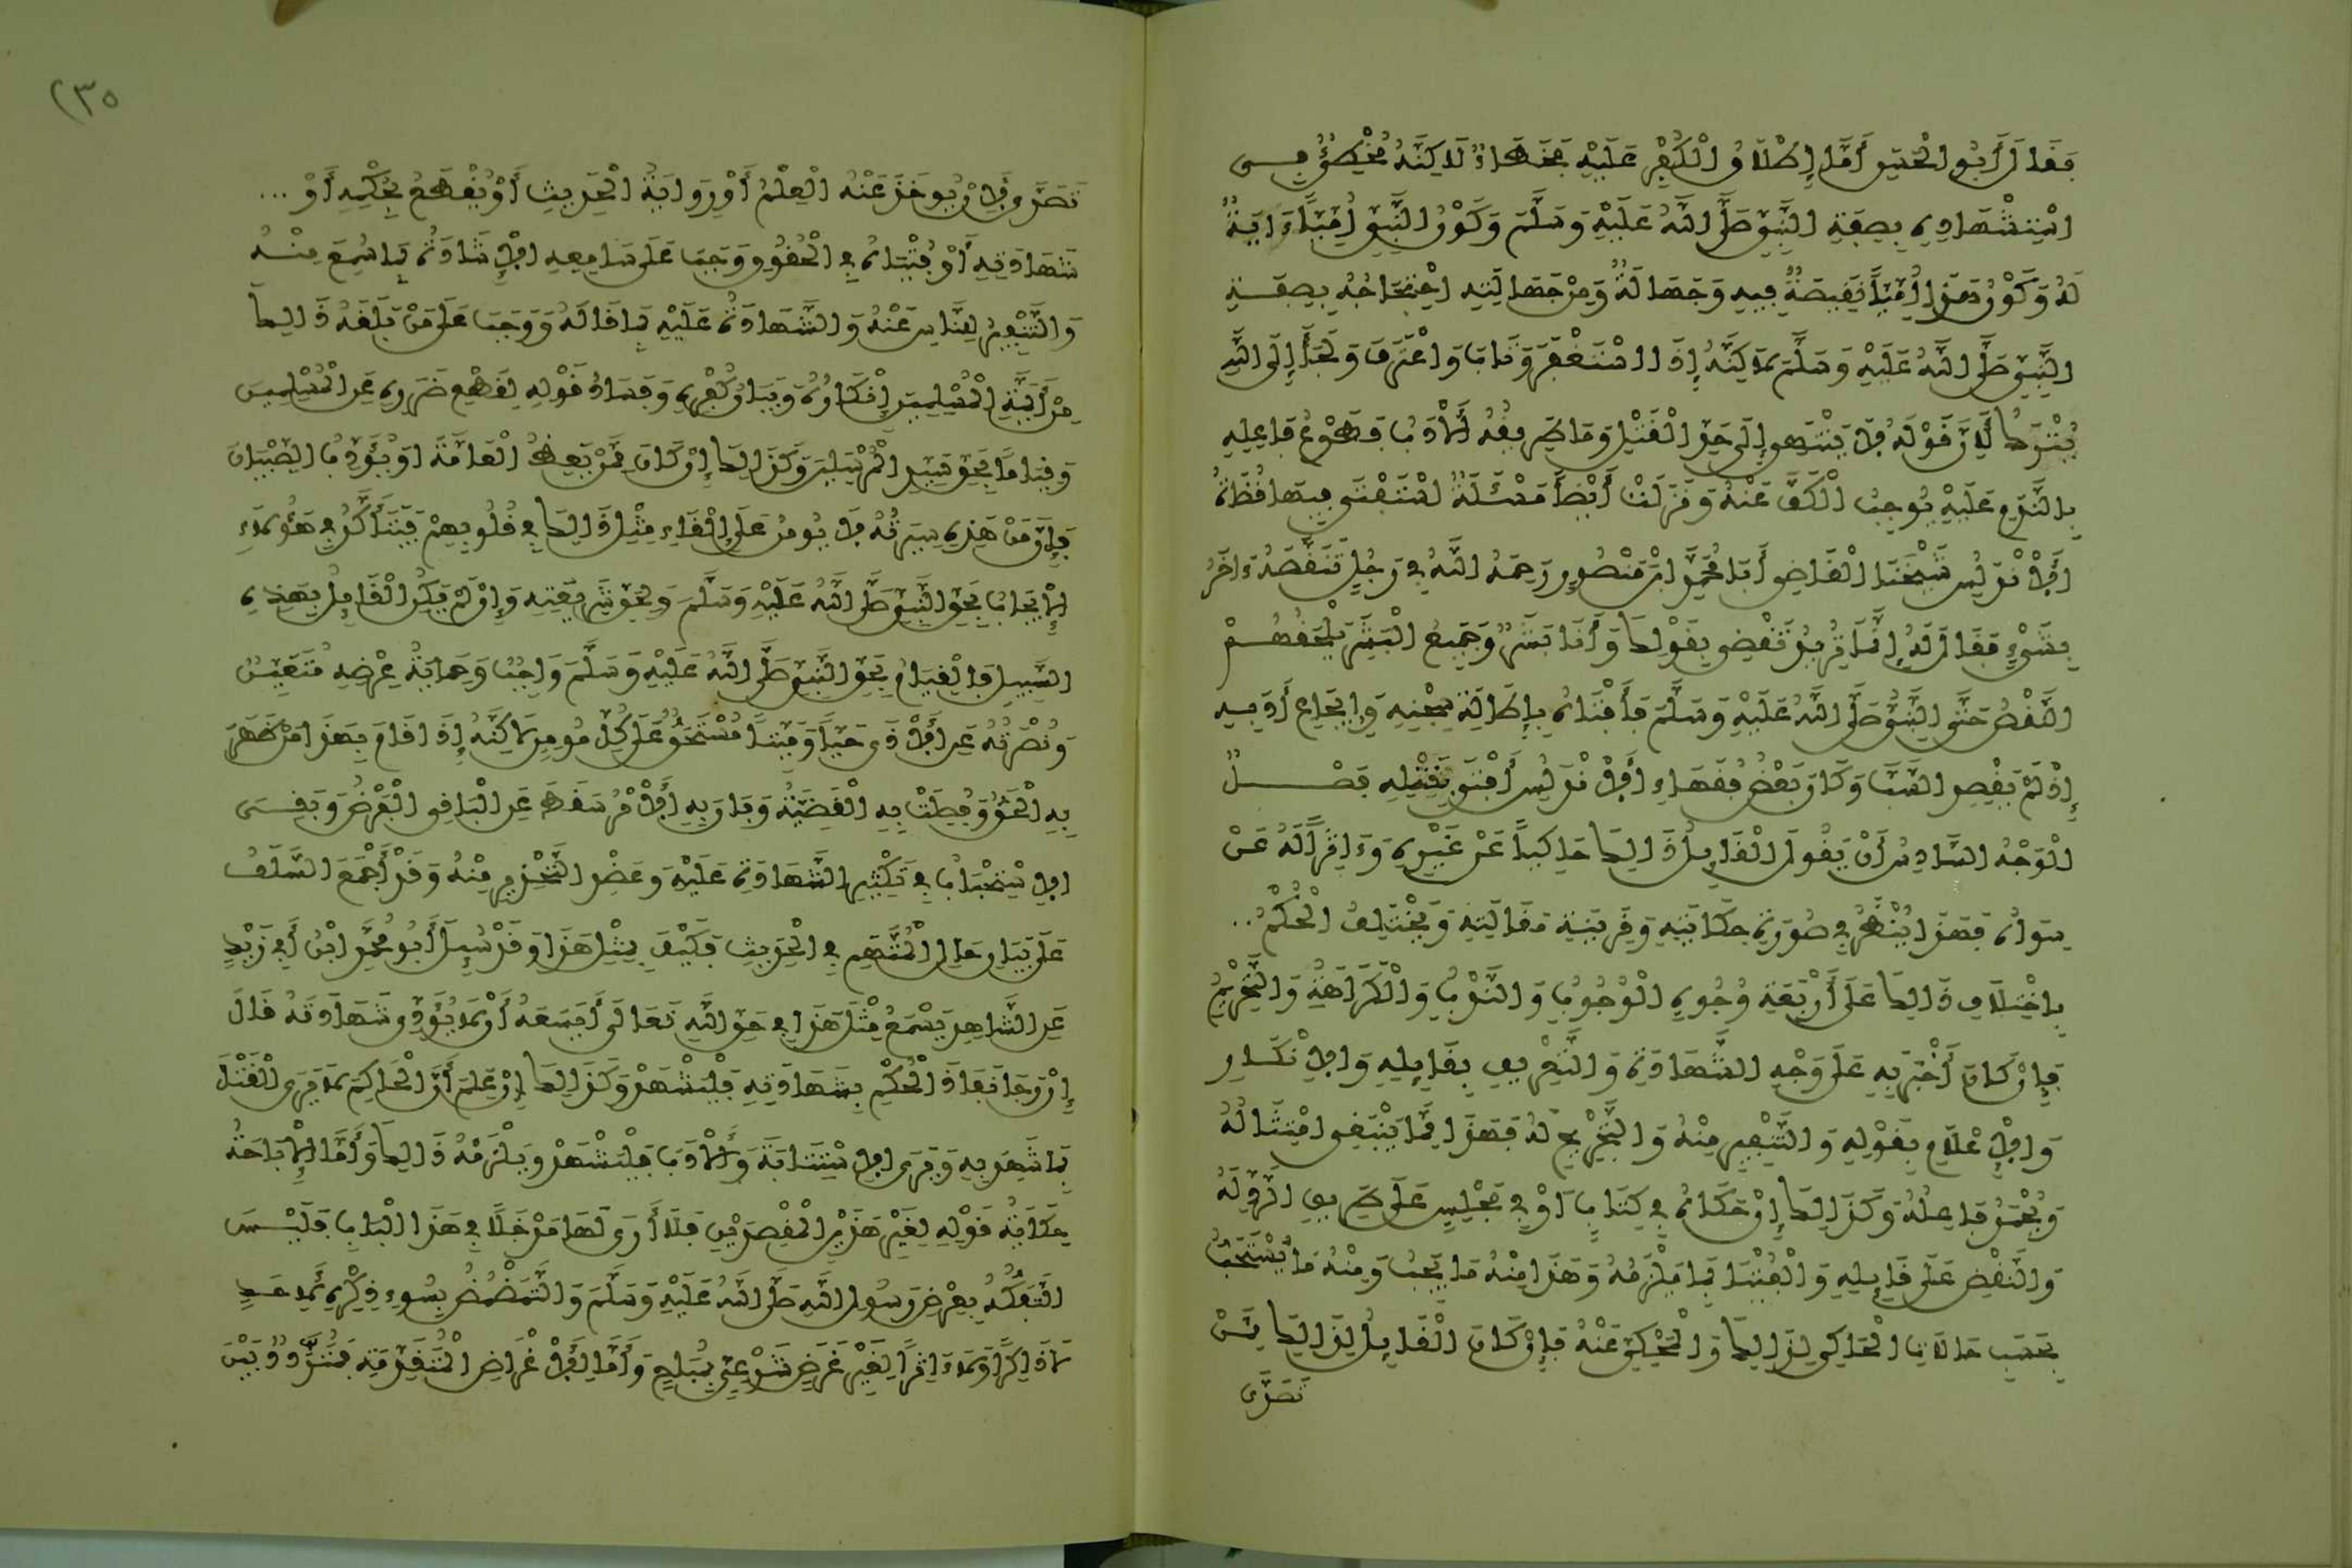 فَقَالَ أَبُو الْحَسَنِ أَمَّا إِطْلَاقُ الْكُفْرِ عَلَيْهِ فَخَطَأٌ لَاكِنَّهُ مُخْطِئٌ فِي
اسْتِشْهَادِهِ بِصِفَةِ النَّبِيِّ صَلَّى اللَّهُ عَلَيْهِ وَسَلَّمَ وَكَوْنُ النَّبِيِّ أُمِّيًّا ءَايَةٌ
لَهُ وَكَوْنُ هَذَا أُمِّيًّا نَقِيصَةٌ فِيهِ وَجَهَالَةٌ وَمِنْ جَهَالَتِهِ احْتِجَاجُهُ بِصِفَةِ
النَّبِيِّ صَلَّى اللَّهُ عَلَيْهِ وَسَلَّمَ لَاكِنَّهُ إِذَا اسْتَغْفَرَ وَتَابَ وَاعْتَرَفَ وَلَجَأَ إِلَى اللَّهِ
يُتْرَكُ لِأَنَّ قَوْلَهُ لَا يَنْتَهِي إِلَى حَدِّ الْقَتْلِ وَمَا طَرِيقُهُ الْأَدَبُ فَطَوْعُ فَاعِلِهِ
بِالنَّدَمِ عَلَيْهِ يُوجِبُ الْكَفَّ عَنْهُ وَنَزَلَتْ أَيْضًا مَسْئَلَةٌ اسْتَفْتَى فِيهَا قُضَاةُ
الْأَنْدَلُسِ شَيْخَنَا الْقَاضِي أَبَا مُحَمَّدِ ابْنَ مَنْصُورٍ رَحِمَهُ اللَّهُ فِي رَجُلٍ تَنَقَّصَهُ ءَاخَرُ
بِشَيْءٍ فَقَالَ لَهُ إِنَّمَا تُرِيدُ نَقْصِي بِقَوْلِكَ وَأَنَا بَشَرٌ وَجَمِيعُ الْبَشَرِ يَلْحَقُهُمْ
النَّقْصُ حَتَّى النَّبِيُّ صَلَّى اللَّهُ عَلَيْهِ وَسَلَّمَ فَأَفْتَاهُ بِإِطَالَةِ سِجْنِهِ وَإِيجَاعِ أَدَبِهِ
إِذْ لَمْ يَقْصِدِ السَّبَّ وَكَانَ بَعْضُ فُقَهَاءِ الْأَنْدَلُسِ أَفْتَى بِقَتْلِهِ فَصْلٌ
الْوَجْهُ السَّادِسُ أَنْ يَقُولَ الْقَائِلُ ذَالِكَ حَاكِيًا عَنْ غَيْرِهِ وَءَاثِرًا لَهُ عَنْ
سِوَاهُ فَهَذَا يُنْظَرُ فِي صُورَةِ حِكَايَتِهِ وَقَرِينَةِ مَقَالَتِهِ وَيَخْتَلِفُ الْحُكْمُ ..
بِاخْتِلَافِ ذَالِكَ عَلَى أَرْبَعَةِ وُجُوهٍ الْوُجُوبُ وَالنَّدْبُ وَالْكَرَاهَةُ وَالتَّحْرِيمُ
فَإِنْ كَانَ أَخْبَرَ بِهِ عَلَى وَجْهِ الشَّهَادَةِ وَالتَّعْرِيفِ بِقَائِلِهِ وَالْإِنْكَارِ
وَالْإِعْلَامِ بِقَوْلِهِ وَالتَّنْفِيرِ مِنْهُ وَالتَّجْرِيحِ لَهُ فَهَذَا مِمَّا يَنْبَغِي امْتِثَالُهُ
وَيُحْمَدُ فَاعِلُهُ وَكَذَالِكَ إِنْ حَكَاهُ فِي كِتَابٍ أَوْ فِي مَجْلِسٍ عَلَى طَرِيقِ الرَّدِّ لَهُ
وَالنَّقْضِ عَلَى قَائِلِهِ وَالْفُتْيَا بِمَا يَلْزَمُهُ وَهَذَا مِنْهُ مَا يَجِبُ وَمِنْهُ مَا يُسْتَحَبُّ
بِحَسَبِ حَالَاتِ الْحَاكِي لِذَالِكَ وَالْمَحْكِيِّ عَنْهُ فَإِنْ كَانَ الْقَائِلُ لِذَالِكَ مِمَّنْ
تَصَدَّى
تَصَدَّى لِأَنْ يُوخَذَ عَنْهُ الْعِلْمُ أَوْ رِوَايَةُ الْحَدِيثِ أَوْ يُقْطَعُ بِحُكْمِهِ أَوْ ...
شَهَادَتِهِ أَوْ فُتْيَاهُ فِي الْحُقُوقِ وَجَبَ عَلَى سَامِعِهِ الْإِشَادَةُ بِمَا سُمِعَ مِنْهُ
وَالتَّنْفِيرُ لِلنَّاسِ عَنْهُ وَالشَّهَادَةُ عَلَيْهِ بِمَا قَالَهُ وَوَجَبَ عَلَى مَنْ بَلَغَهُ ذَالِكَ
مِنْ أَئِمَّةِ الْمُسْلِمِينَ إِنْكَارُهُ وَبَيَانُ كُفْرِهِ وَفَسَادُ قَوْلِهِ لِقَطْعِ ضَرَرِهِ عَنِ الْمُسْلِمِينَ
وَقِيَامًا بِحَقِّ سَيِّدِ الْمُرْسَلِينَ وَكَذَالِكَ إِنْ كَانَ مِمَّنْ يَعِظُ الْعَامَّةَ أَوْ يُؤَدِّبُ الصِّبْيَانَ
فَإِنَّ مَنْ هَذِهِ سِيرَتُهُ لَا يُومَنُ عَلَى إِلْقَاءِ مِثْلِ ذَالِكَ فِي قُلُوبِهِمْ فَيَتَأَكَّدُ فِي هَؤُلَاءِ
الْإِيجَابُ بِحَقِّ النَّبِيِّ صَلَّى اللَّهُ عَلَيْهِ وَسَلَّمَ وَبِحَقِّ شَرِيعَتِهِ وَإِنْ لَمْ يَكُنِ الْقَائِلُ بِهَذِهِ
السَّبِيلِ فَالْقِيَامُ بِحَقِّ النَّبِيِّ صَلَّى اللَّهُ عَلَيْهِ وَسَلَّمَ وَاجِبٌ وَحِمَايَةُ عِرْضِهِ مُتَعَيِّنٌ
وَنُصْرَتُهُ عَنِ الْأَذَى حَيًّا وَمَيِّتًا مُسْتَحَقٌّ عَلَى كُلِّ مُومِنٍ لَاكِنَّهُ إِذَا قَامَ بِهَذَا مَنْ ظَهَرَ
بِهِ الْحَقُّ وَفُصِلَتْ بِهِ الْقَضِيَّةُ وَبَانَ بِهِ الْأَمْرُ سَقَطَ عَنِ الْبَاقِي الْفَرْضُ وَبَقِيَ
الْاسْتِحْبَابُ فِي تَكْثِيرِ الشَّهَادَةِ عَلَيْهِ وَعَضْدِ التَّحْذِيرِ مِنْهُ وَقَدْ أَجْمَعَ السَّلَفُ
عَلَى بَيَانِ حَالِ الْمُتَّهَمِ فِي الْحَدِيثِ فَكَيْفَ بِمِثْلِ هَذَا وَقَدْ سُئِلَ أَبُو مُحَمَّدِ ابْنُ أَبِي زَيْدٍ
عَنِ الشَّاهِدِ يَسْمَعُ مِثْلَ هَذَا فِي حَقِّ اللَّهِ تَعَالَى أَيَسَعُهُ أَنْ لَا يُؤَدِّيَ شَهَادَتَهُ قَالَ
إِنْ رَجَا نَفَاذَ الْحُكْمِ بِشَهَادَتِهِ فَلْيَشْهَدْ وَكَذَالِكَ إِنْ عَلِمَ أَنَّ الْحَاكِمَ لَا يَرَى الْقَتْلَ
بِمَا شَهِدَ بِهِ وَيَرَى الْاسْتِتَابَةَ وَالْأَدَبَ فَلْيَشْهَدْ وَيَلْزَمُهُ ذَالِكَ وَأَمَّا الْإِبَاحَةُ
حِكَايَةُ قَوْلِهِ لِغَيْرِ هَذَيْنِ الْمَقْصَدَيْنِ فَلَا أَرَى لَهَا مَدْخَلًا فِي هَذَا الْبَابِ فَلَيْسَ
التَّفَكُّهُ بِعِرْضِ رَسُولِ اللَّهِ صَلَّى اللَّهُ عَلَيْهِ وَسَلَّمَ وَالتَّمَضْمُضُ بِسُوءِ ذِكْرِهِ لِأَحَدٍ
لَا ذَاكِرًا وَلَا ءَاثِرًا لِغَيْرِ غَرَضٍ شَرْعِيٍّ بِمُبَاحٍ وَأَمَّا لِلْأَغْرَاضِ الْمُتَقَدِّمَةِ فَمُتَرَدِّدٌ بَيْنَ
٢٣٥